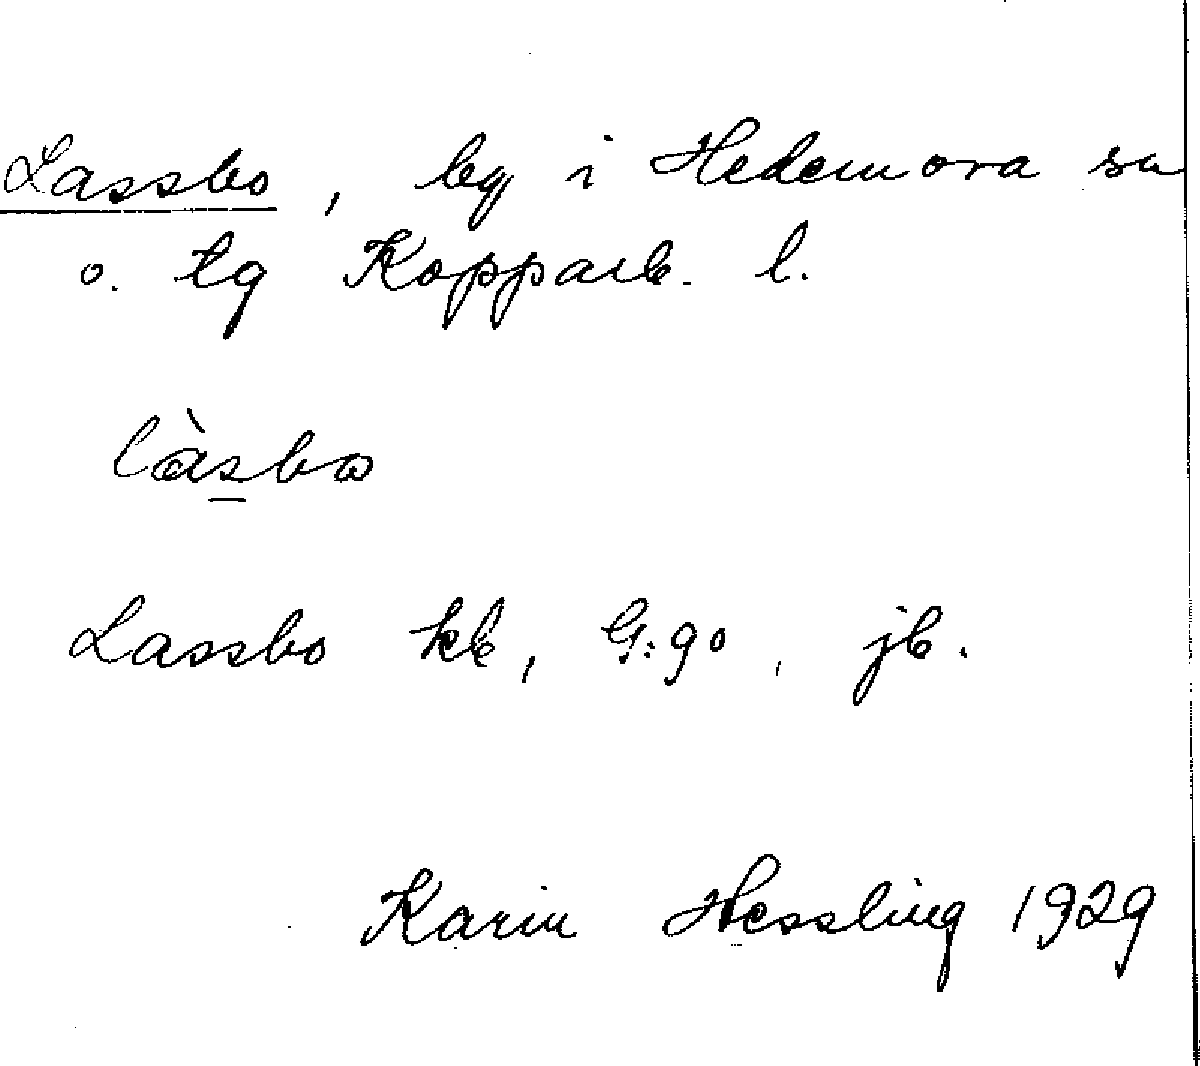 Lassbo, by i Hedemora sn
o. tg Kopparb. l.
làsbo
Lassbo kb, G:90, jb.
Karin Hessling 1929